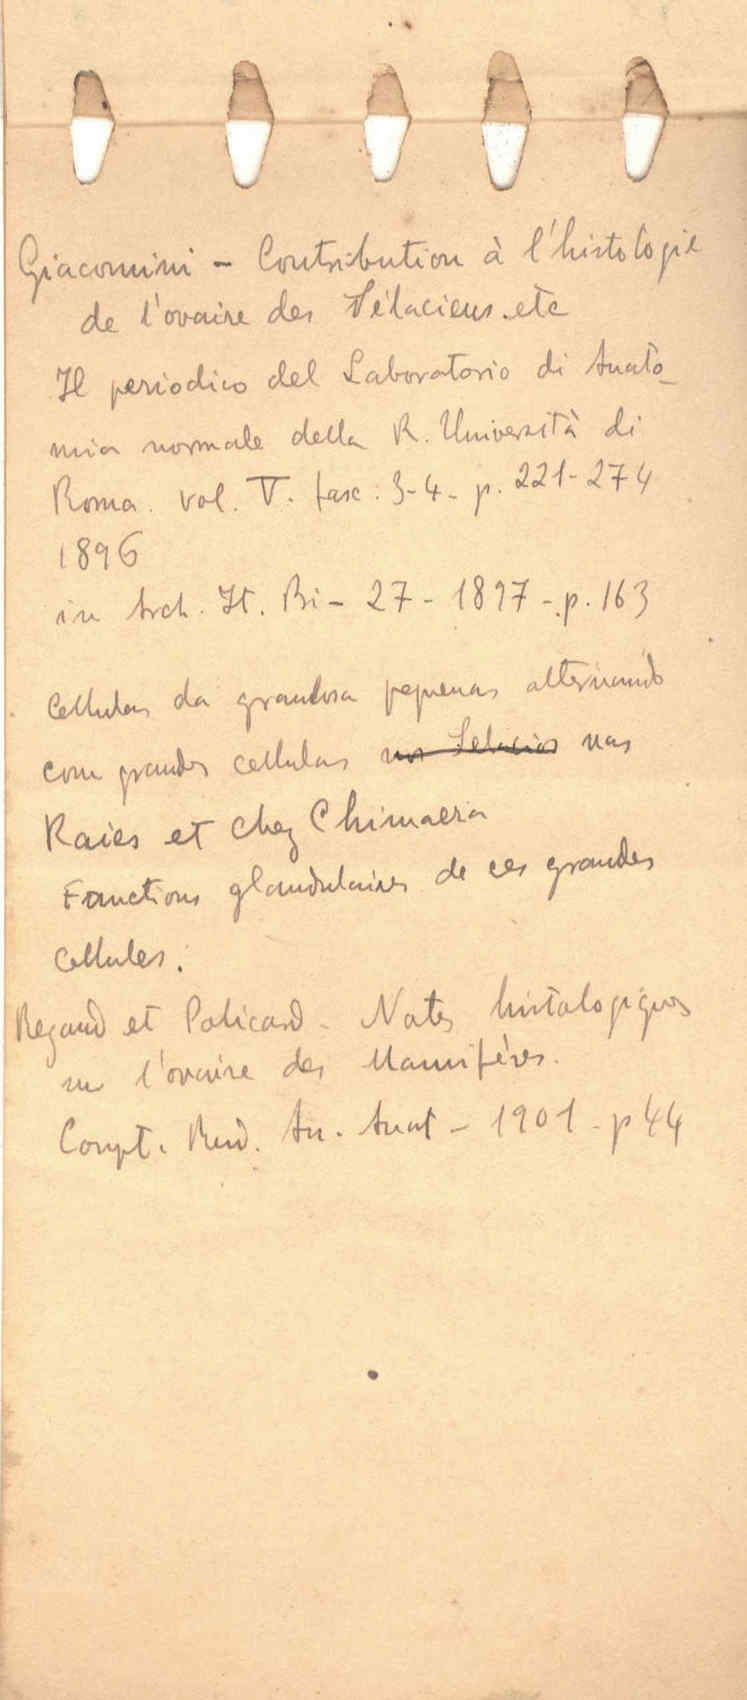 Giacomini - Contribution à l'histologie
de l'ovaire des Sélaciens. etc
Il periodico del Laboratorio di Anato_
mia normale della R. Università di
Roma. vol. V. fasc: 3-4- p. 221-274
1896
in Arch. It. Bi- 27- 1897 - p. 163
Cellulas da granulosa pequenas alternando
com grandes cellulas nos Selacios nas
Raies et chez Chimaera
Fonctions glandulaires de ces grandes
cellules.
Regaud et Policard - Notes histologiques
sur l'ovaire des Mamifères.
Compt. Rend. An. Anat - 1901 - p 44